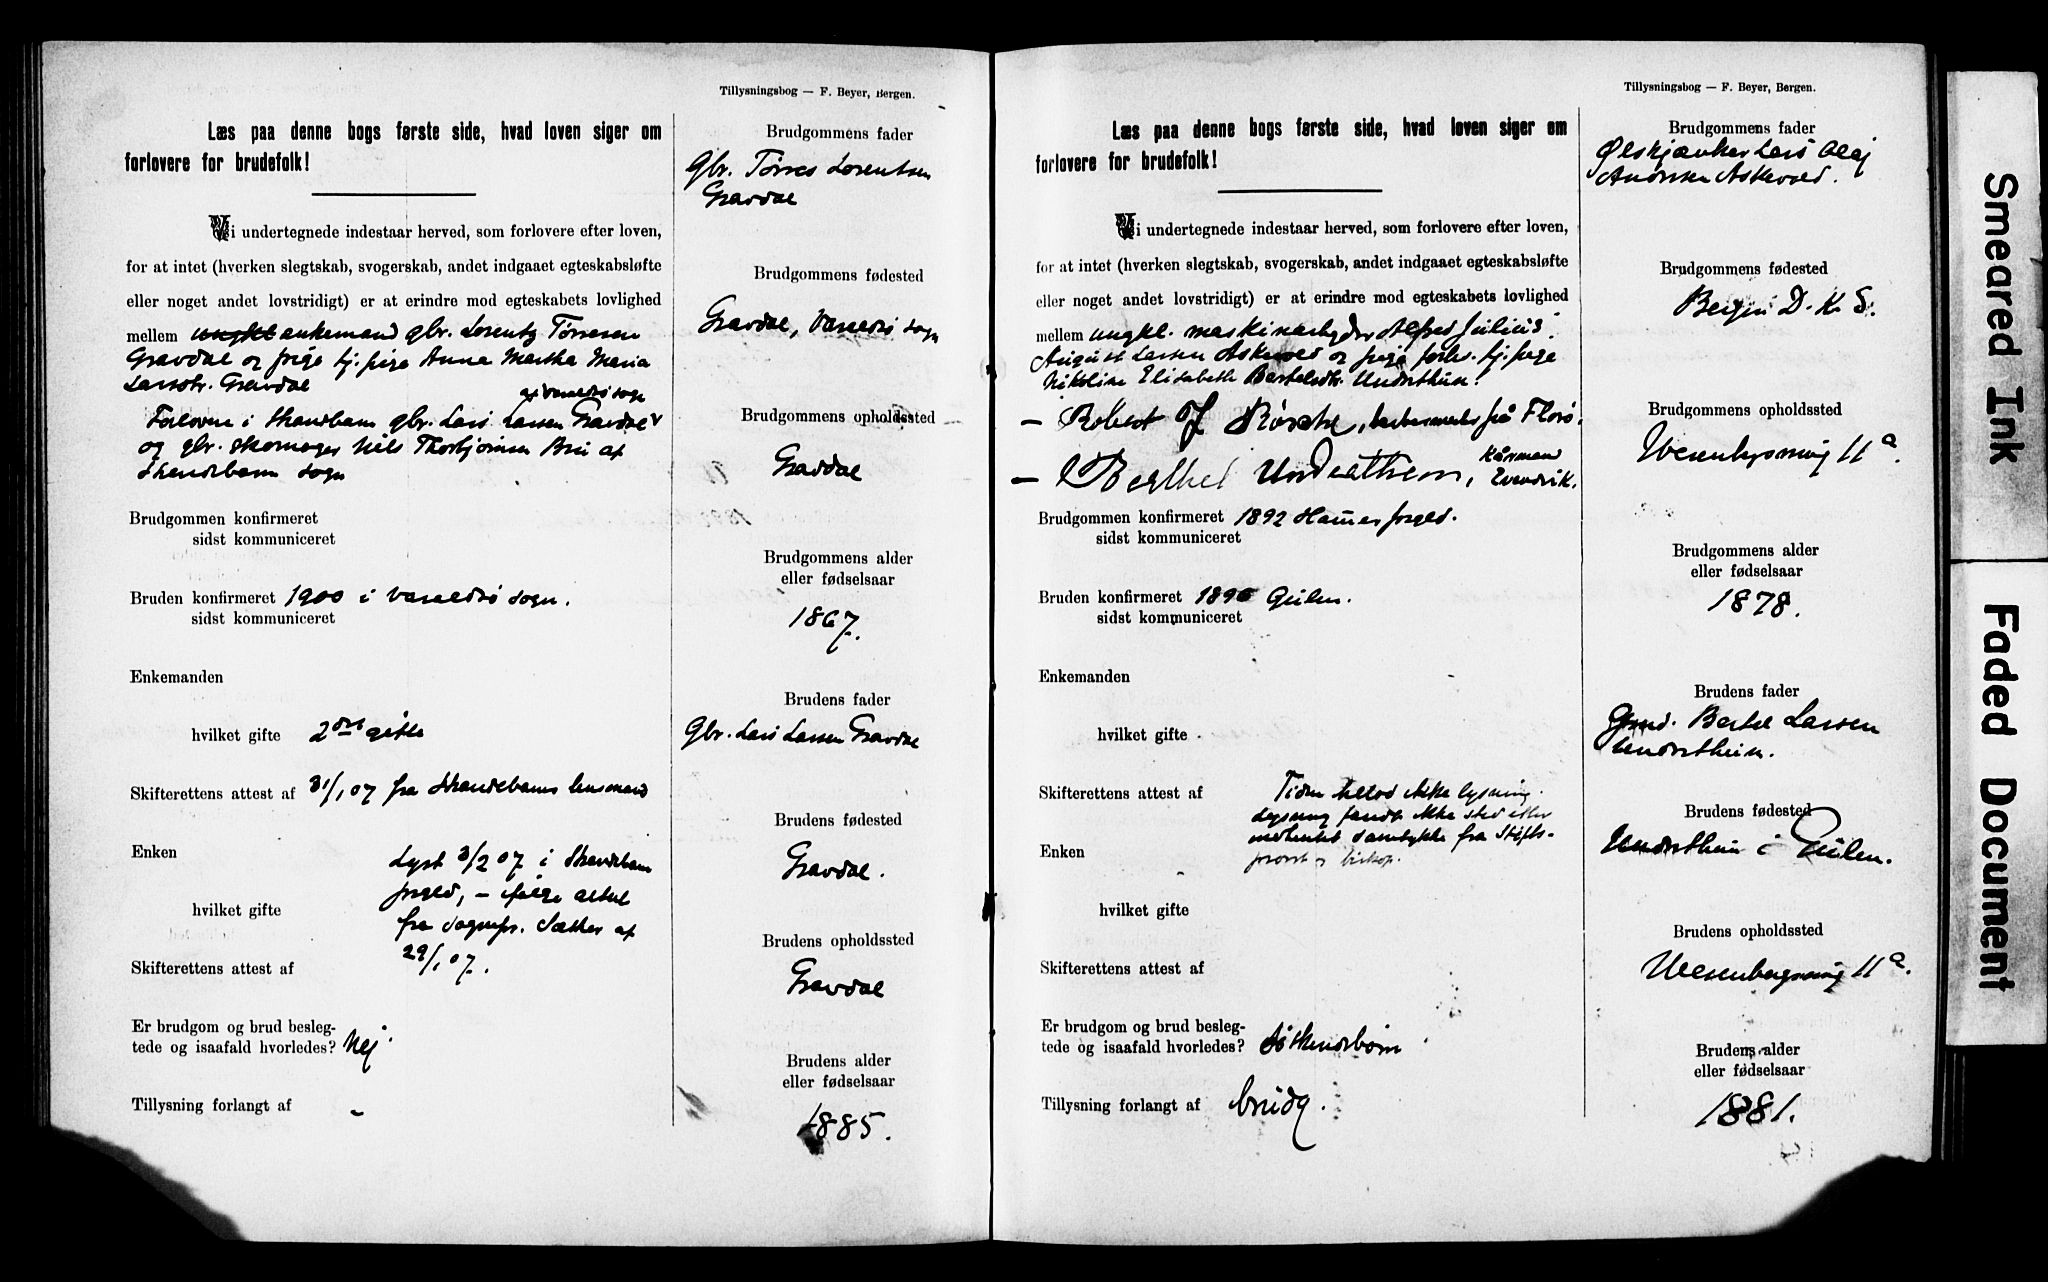 Tillysningsbog — F. Beyer, Bergen.
Læs paa denne bogs første side, hvad loven siger om
forlovere for brudefolk!
Vi undertegnede indestaar herved, som forlovere efter loven,
for at intet (hverken slegtskab, svogerskab, andet indgaaet egteskabsløfte
eller noget andet lovstridigt) er at erindre mod egteskabets lovlighed
mellem ungkl enkemand gbr. Lorentz Tørresen
Gravdal og pige tj. pige Anna Martha Maria
Larsdtr. Gravdal
af Varaldsø sogn
Forlovere i Strandebarm gbr. Lars Larsen Gravdal
og gbr. skomager Nils Thorbjørnsen Bru af
Strandebarm sogn
Brudgommen konfirmeret
sidst kommuniceret
Bruden konfirmeret 1900 i Varaldsø sogn.
sidst kommuniceret
Enkemanden
hvilket gifte 2det gifte
Skifterettens attest af 31/1 07 fra Strandebarms lensmand
Enken
Lyst 3/2 07 i Strandebarm
prgld, — ifølge attest
fra sognepr. Sætter af
29/1 07.
hvilket gifte
Skifterettens attest af
Er brudgom og brud besleg-
tede og isaafald hvorledes? Nej.
Tillysning forlangt af –
Brudgommens fader
Gbr. Tørres Lorentsen
Gravdal
Brudgommens fødested
Gravdal, Varaldsø sogn
Brudgommens opholdssted
Gravdal
Brudgommens alder
eller fødselsaar
1867.
Brudens fader
Gbr. Lars Larsen Gravdal
Brudens fødested
Gravdal.
Brudens opholdssted
Gravdal
Brudens alder
eller fødselsaar
1885.
Tillysningsbog — F. Beyer, Bergen.
Læs paa denne bogs første side, hvad loven siger om
forlovere for brudefolk!
Vi undertegnede indestaar herved, som forlovere efter loven,
for at intet (hverken slegtskab, svogerskab, andet indgaaet egteskabsløfte
eller noget andet lovstridigt) er at erindre mod egteskabets lovlighed
mellem ungkl. maskinarbejder Alfred Julius
August Larsen Askevold og pige forh. tj. pige
Nikoline Elisabeth Bertelsdtr. Underthun.
— Robert J , fra Florø.
— Berthel Underthun, Evindvik.
Brudgommen konfirmeret 1892 Hammer prgld.
sidst kommuniceret
Bruden konfirmeret 1896 Gulen.
sidst kommuniceret
Enkemanden
hvilket gifte
Skifterettens attest af
Tiden tillod ikke lysning.
Lysning fandt ikke sted efter
indhentet samtykke fra Stifts-
provst og biskop.
Enken
hvilket gifte
Skifterettens attest af
Er brudgom og brud besleg-
tede og isaafald hvorledes? Søskendebørn
Tillysning forlangt af brudg.
Brudgommens fader
Ølskjænker Lars Olaj
Andersen Askevold.
Brudgommens fødested
Bergen D. K. S.
Brudgommens opholdssted
Wesenbergsmug 11a.
Brudgommens alder
eller fødselsaar
1878.
Brudens fader
Gmd. Bertel Larsen
Underthun.
Brudens fødested
Underthun i Gulen.
Brudens opholdssted
Wesenbergsmug 11a.
Brudens alder
eller fødselsaar
1881.
Smeared Ink
Faded Document